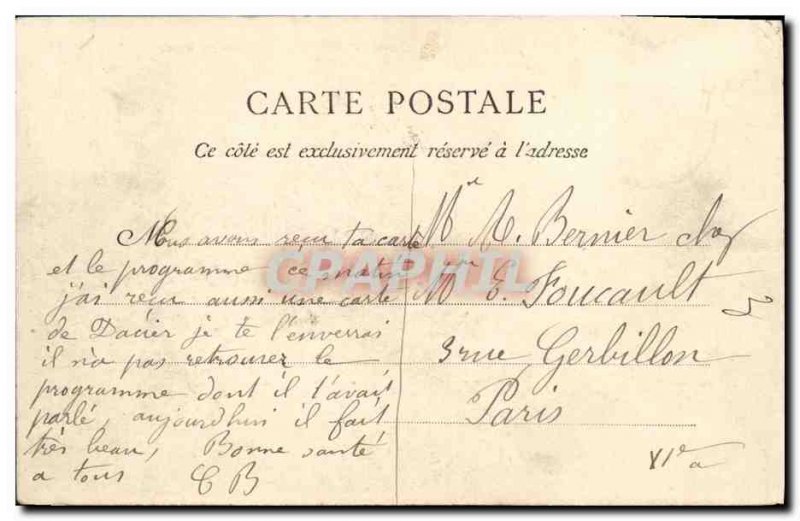 CARTE POSTALE
Ce côté est exclusivement réservé à l'adresse
Nous avons reçu ta carte
et le programme ce matin
j'ai reçu aussi une carte
de Dacier je te l'enverrai
il n'a pas retrouver le
programme dont il t'avait
parlé, aujourd'hui il fait
très beau, Bonne santé
a tous C B
CPAPHIL
M. Bernier chez
E. Foucault
3 rue Gerbillon
Paris
VIe